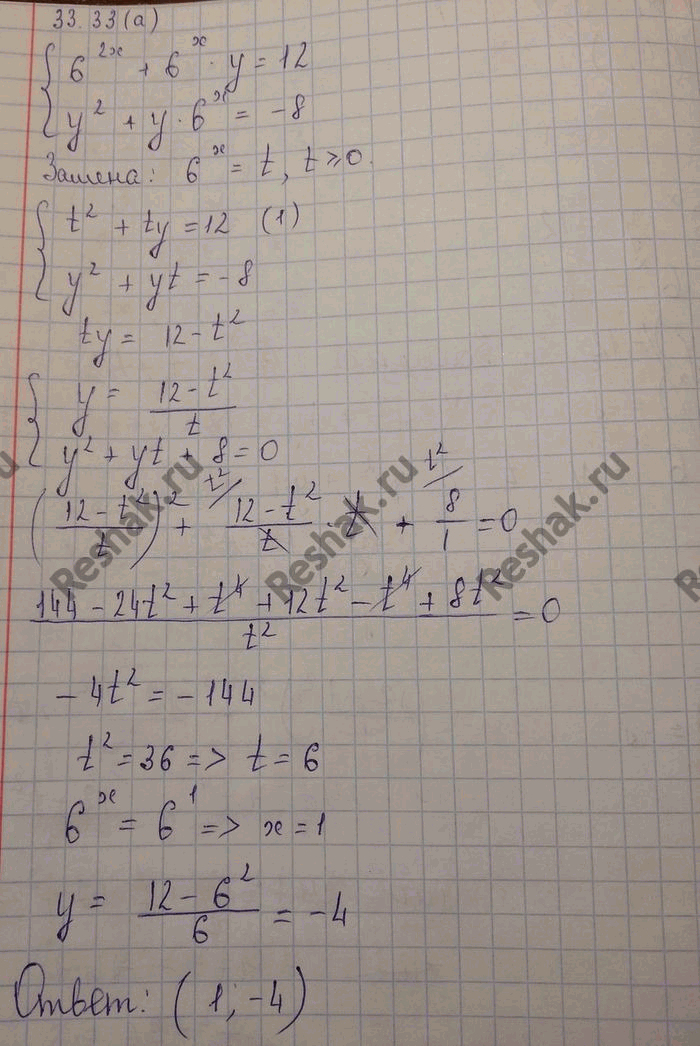 33.33(а)
{ 6^{2x} + 6^x · y = 12
y^2 + y · 6^x = -8
Замена: 6^x = t, t ≥ 0.
{ t^2 + ty = 12 (1)
y^2 + yt = -8
ty = 12 - t^2
{ y = \frac{12 - t^2}{t}
y^2 + yt + 8 = 0
(\frac{12 - t^2}{t})^2 + \frac{12 - t^2}{t}^{/t^2} · t + \frac{8}{1}^{/t^2} = 0
\frac{144 - 24t^2 + t^4 + 12t^2 - t^4 + 8t^2}{t^2} = 0
-4t^2 = -144
t^2 = 36 => t = 6
6^x = 6^1 => x = 1
y = \frac{12 - 6^2}{6} = -4
Ответ: (1; -4)
Reshak.ru
Reshak.ru
Reshak.ru